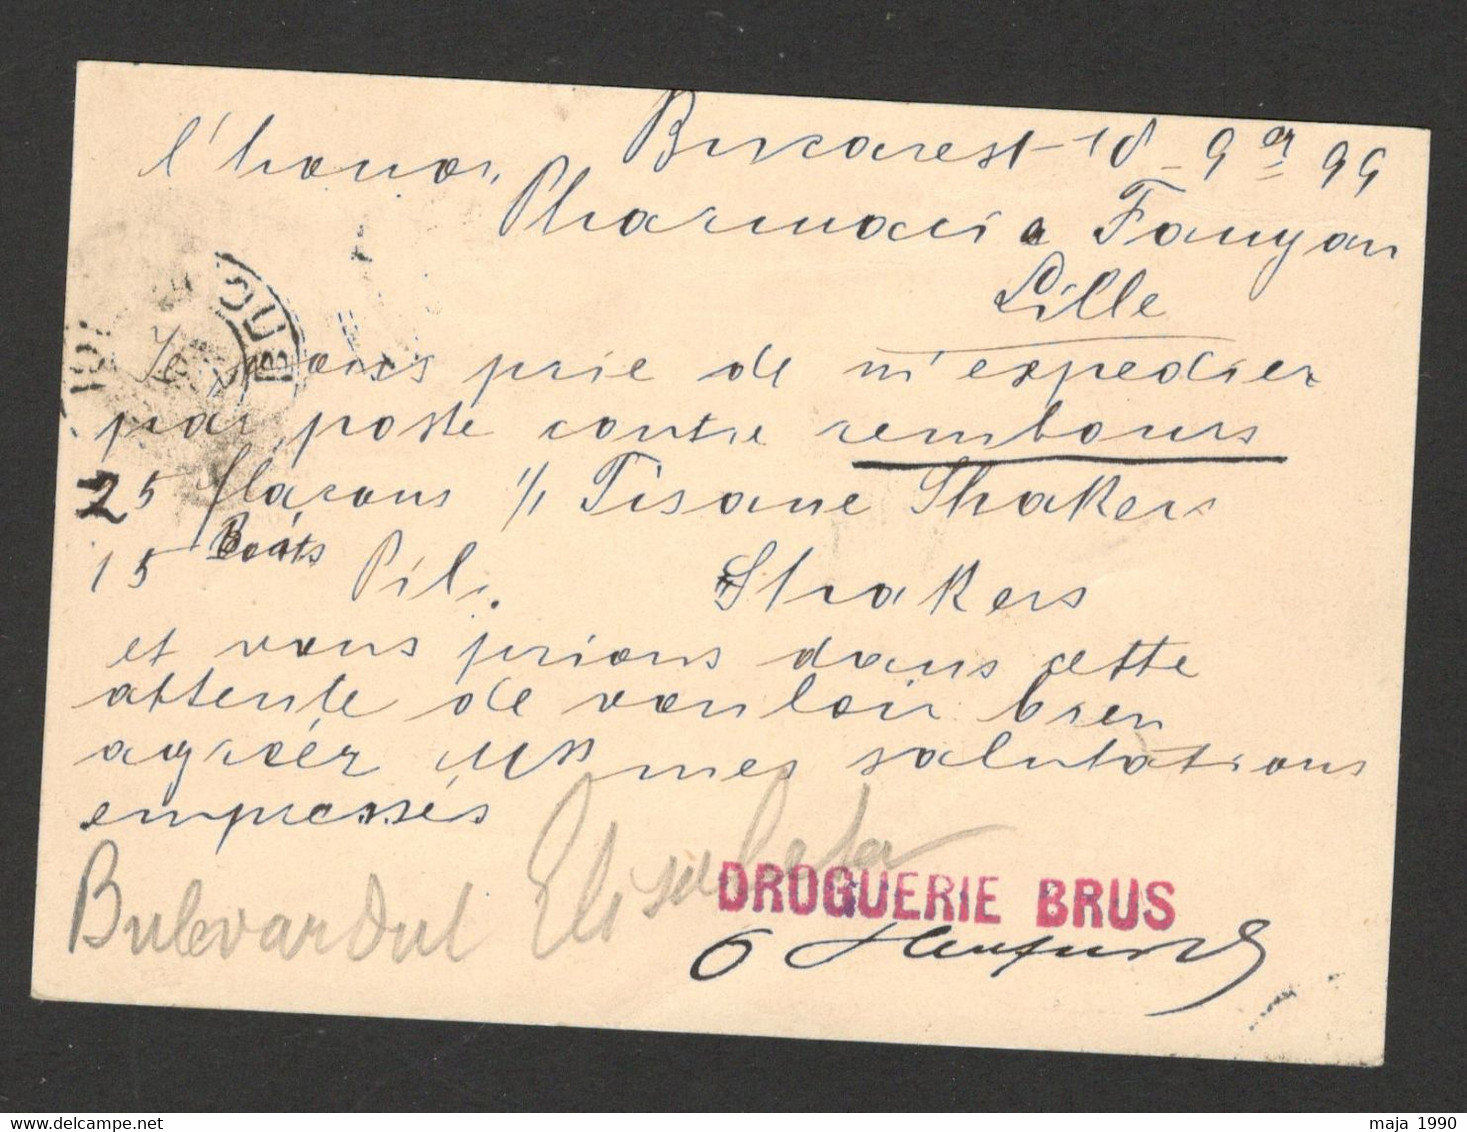 Bucarest 18 9er 99
l'honor.
Pharmacia Fanyau
Lille
Je vous prie de m'expedier
par poste contre rembours
25 flaçons 1/1 Tisane Shakers
15 Boits Pil. Shakers
et vous prions dans cette
attente de vouloir bien
agréér mes salutations
empressés
Bulevardul Elisabeta
DROGUERIE BRUS
maja 1990
delcampe.net